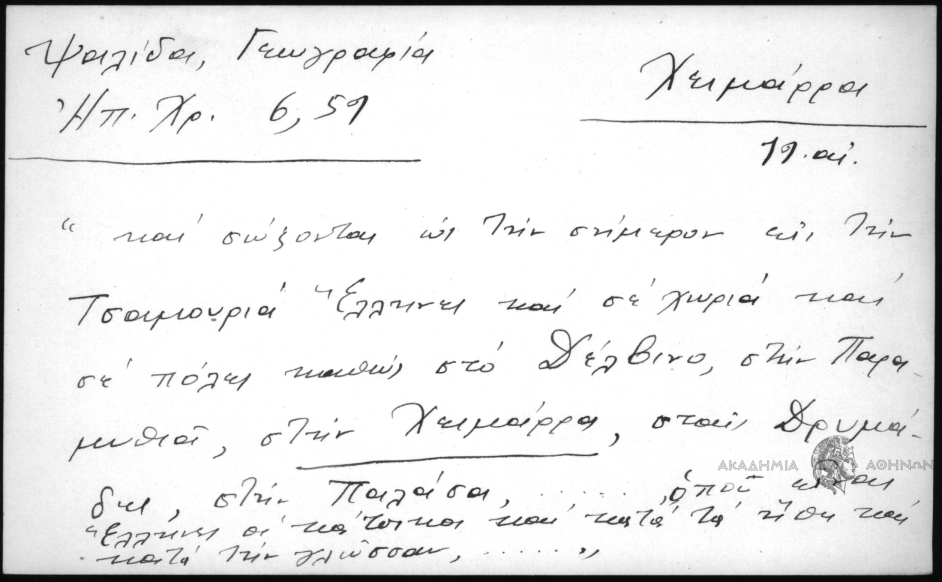 Ψαλίδα, Γεωγραφία
Ἠπ. Χρ. 6, 59
Χειμάρρα
19. αἰ.
“ καί σώζονται ὡς τήν σήμερον εἰς τήν
Τσαμουριά Ἕλληνες καί σέ χωριά καί
σέ πόλεις καθώς στό Δέλβινο, στήν Παρα-
μυθιά, στήν Χειμάρρα, στούς Δρυμά-
δες, στήν Παλάσα, ...... , ὁποῦ εἶναι
Ἕλληνες οἱ κάτοικοι καί κατά τά ἤθη καί
κατά τήν γλῶσσαν, ...... ”
ΑΚΑΔΗΜΙΑ ΑΘΗΝΩΝ